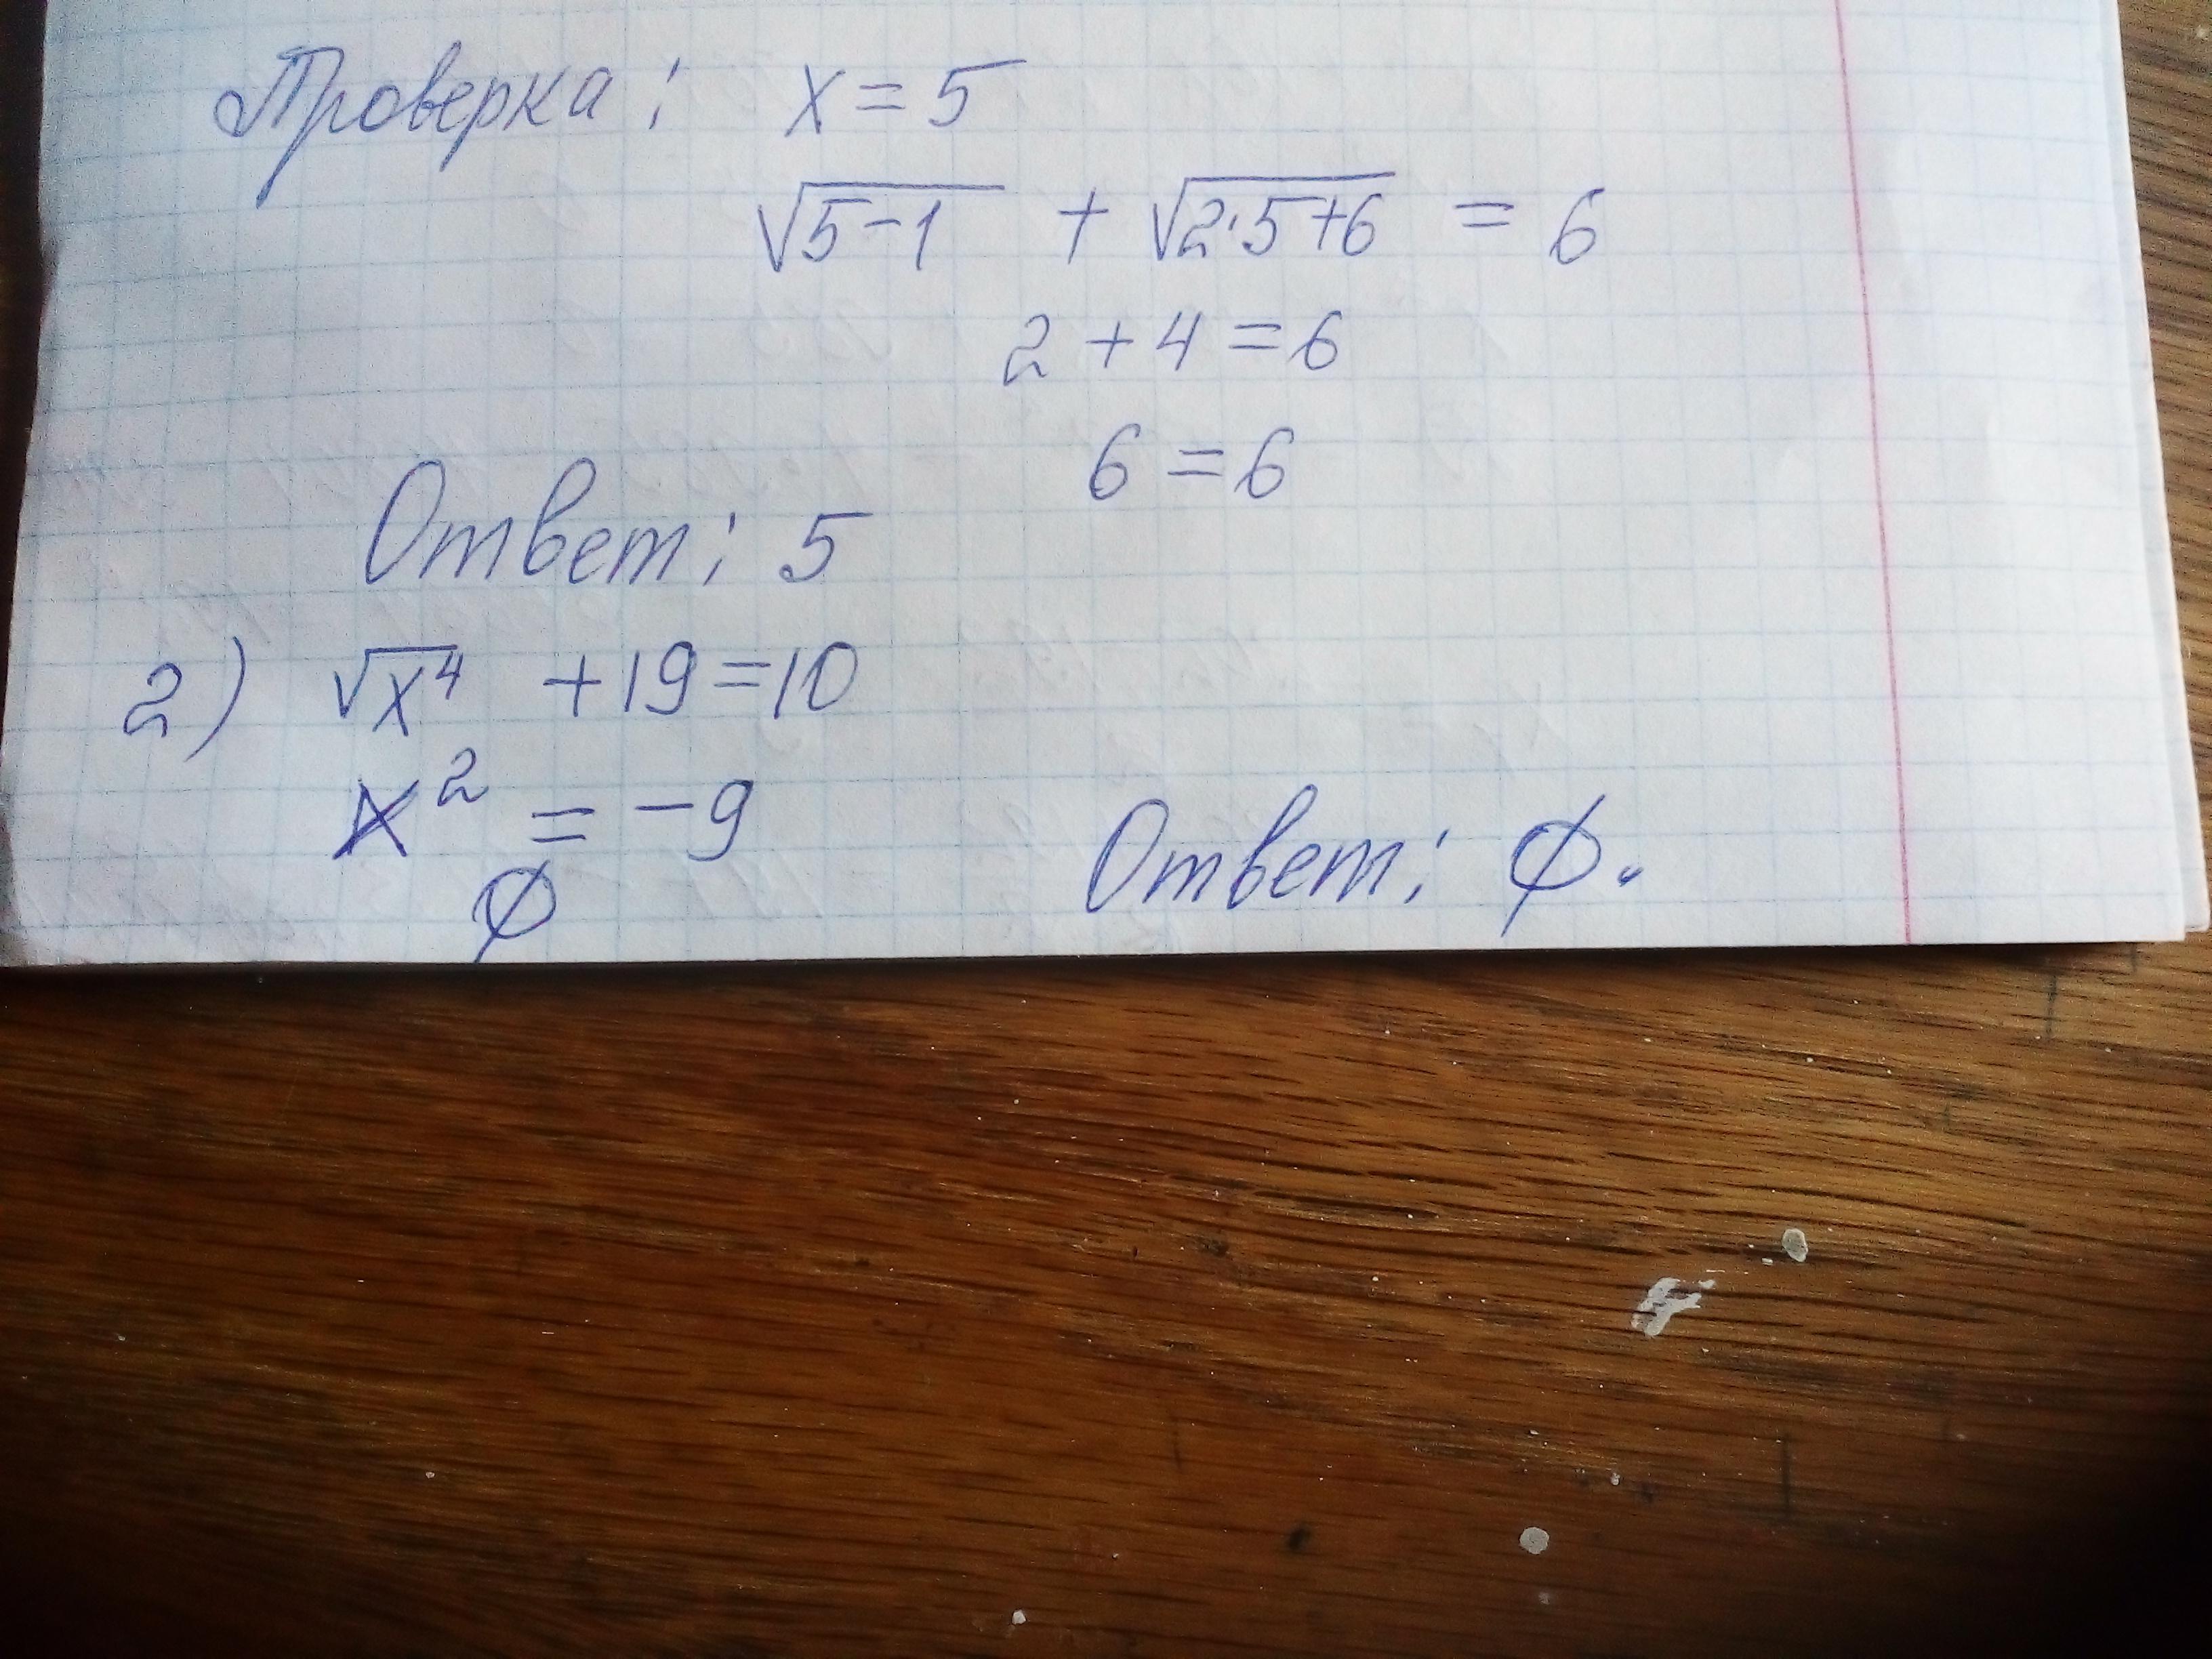 Проверка: x = 5
√(5-1) + √(2·5+6) = 6
2 + 4 = 6
6 = 6
Ответ: 5
2) √x⁴ + 19 = 10
x² = -9
∅
Ответ: ∅.